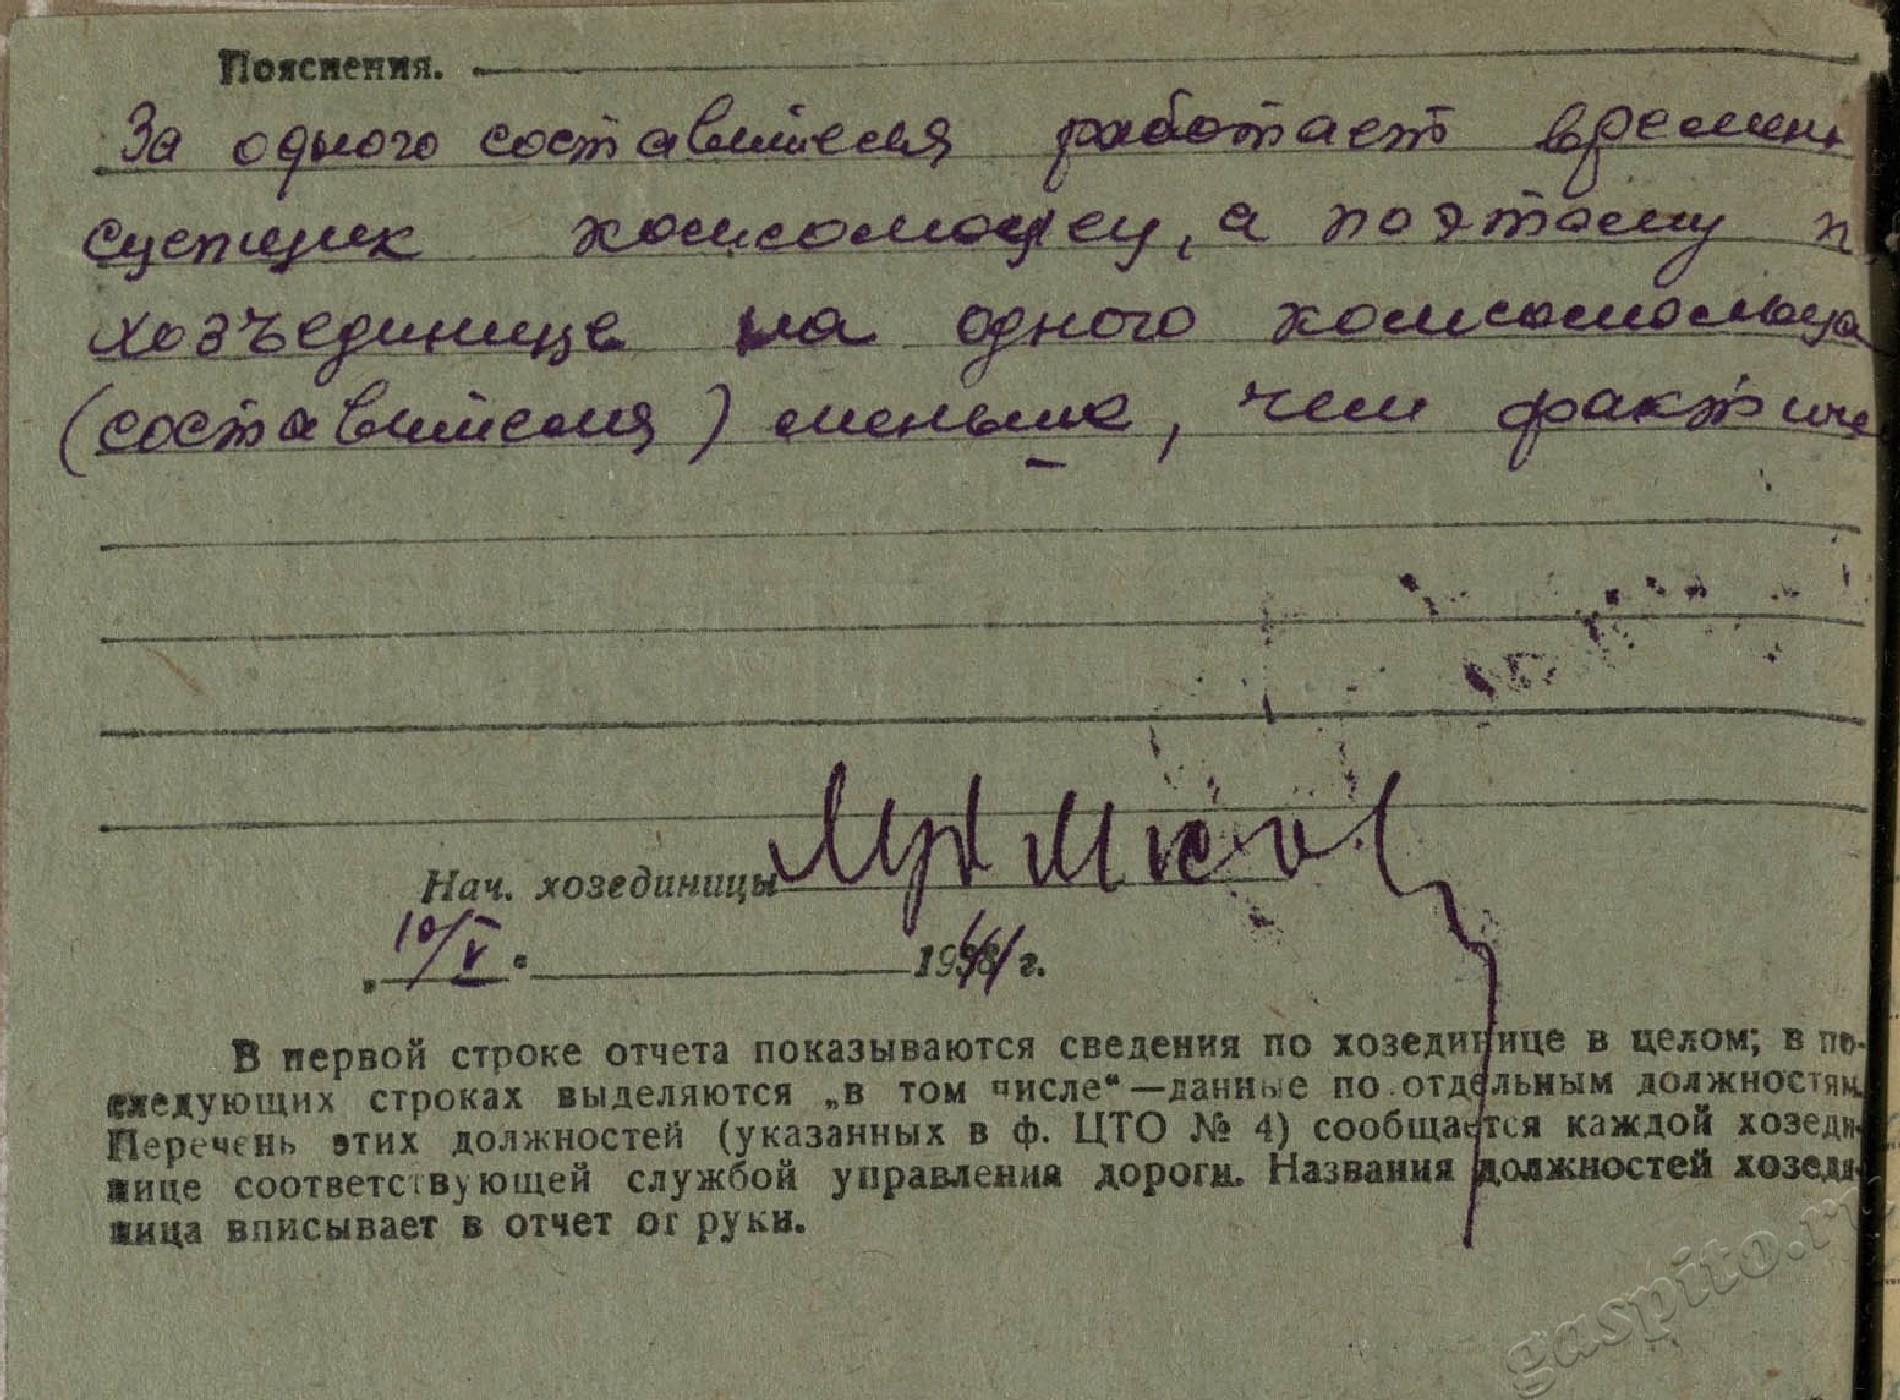 Пояснения.
За одного составителя работает времен
сцепщик комсомолец, а поэтому п
хозъединице на одного комсомольца
(составителя) меньше, чем фактиче
Нач. хозединицы
10/V 1941 г.
В первой строке отчета показываются сведения по хозединице в целом; в по-
следующих строках выделяются „в том числе“—данные по отдельным должностям.
Перечень этих должностей (указанных в ф. ЦТО № 4) сообщается каждой хозеди-
нице соответствующей службой управления дороги. Названия должностей хозеди-
ница вписывает в отчет от руки.
gaspito.ru